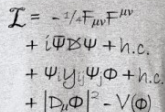 ℒ = -¼FμνF^μν
+ iΨ̄D̸Ψ + h.c.
+ Ψᵢyᵢⱼψⱼφ + h.c.
+ |Dμφ|² - V(φ)